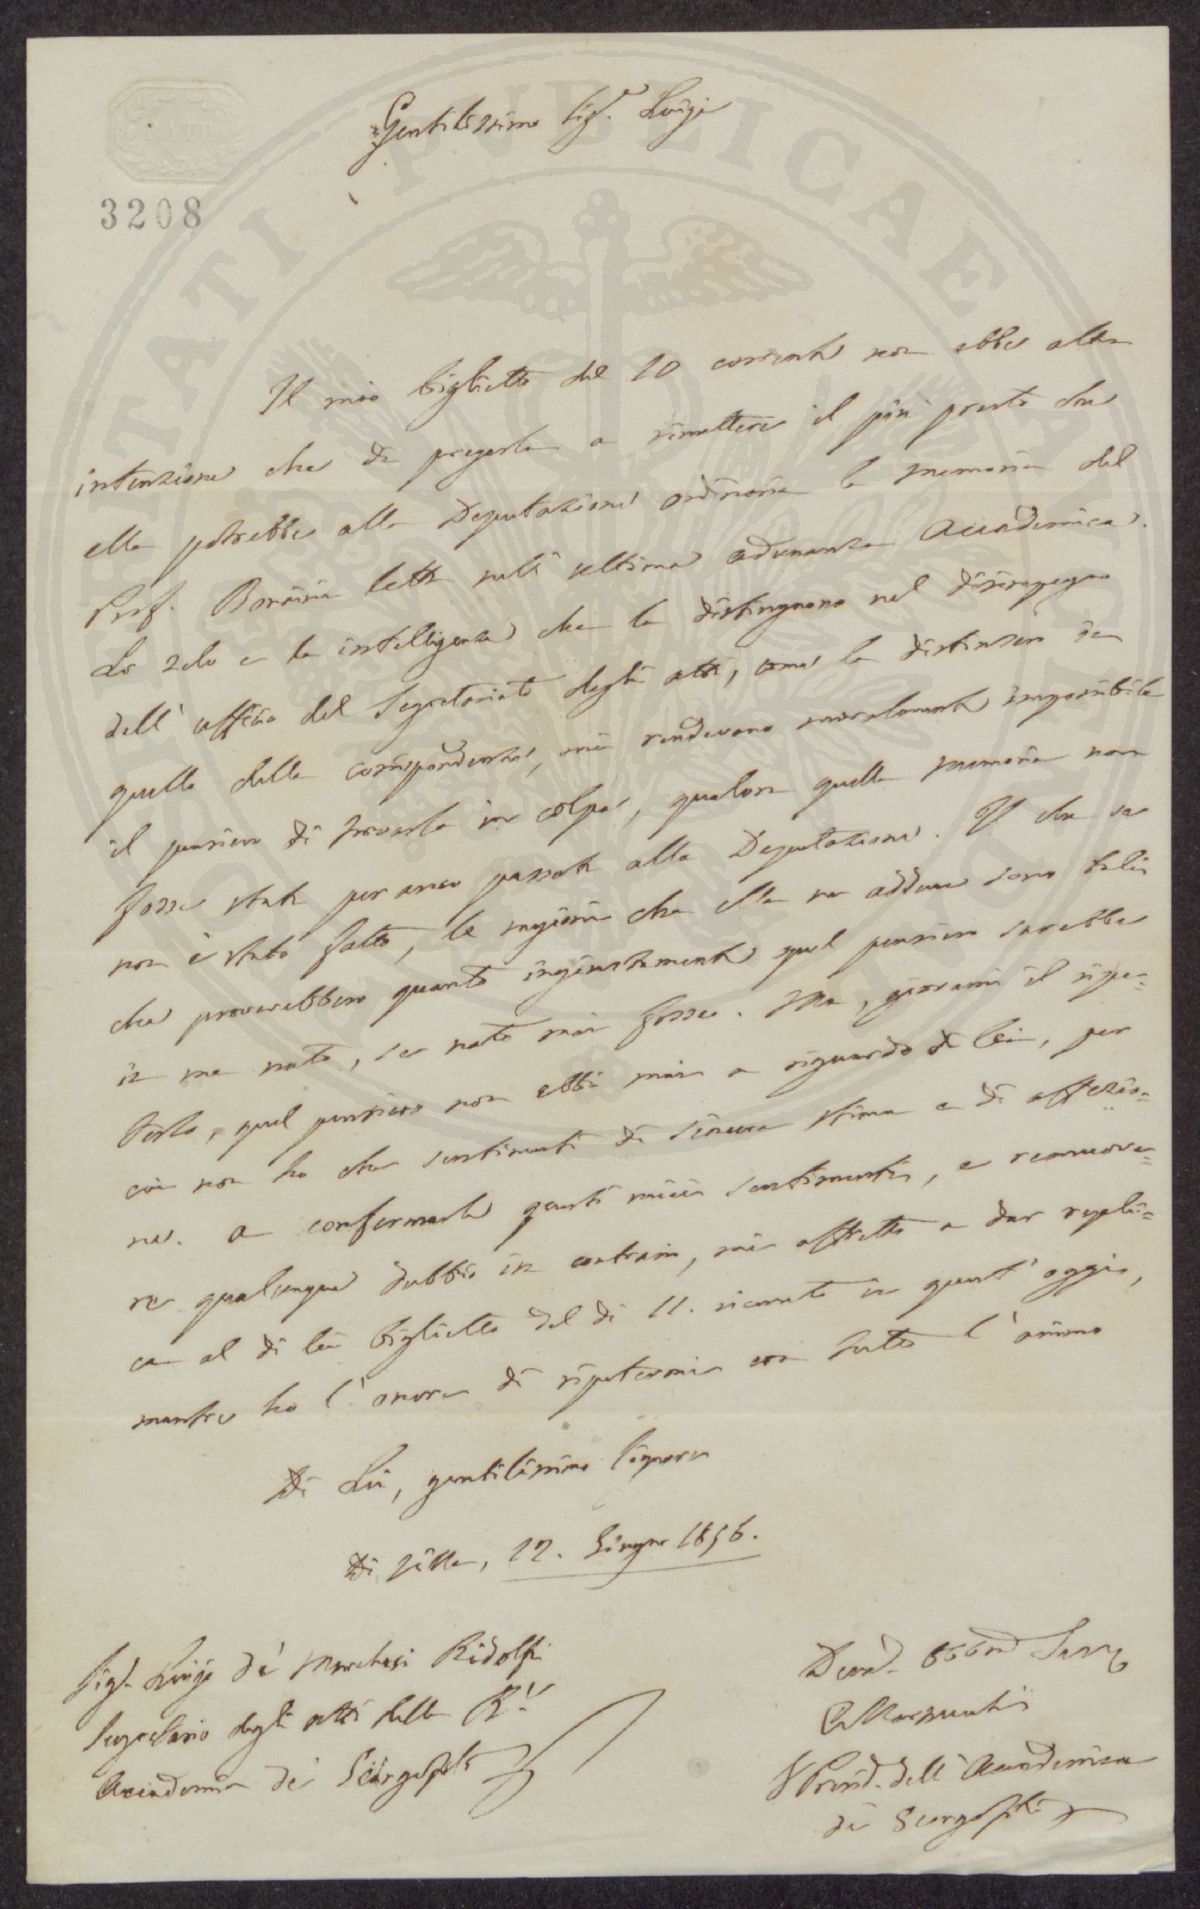 PROSPERITATI PUBLICAE AUGENDAE
3208
Gentilissimo Sig.r Luigi
Il mio biglietto del 10 corrente non ebbe altra
intenzione che di pregarla a rimettere il più presto che
ella potrebbe alla Deputazione ordinaria la memoria del
Prof. letta nell'ultima adunanza Accademica.
Lo zelo e la intelligenza che la distinguono nel disimpegno
dell'uffizio del Segretariato degli atti, come la distinsero in
quello delle corrispondenze, mi rendevano moralmente impossibile
il pensiero di trovarla in colpa, qualora quella memoria non
fosse stata per anco passata alla Deputazione. Il che se
non è stato fatto, le ragioni che ella ne adduce sono tali
che proverebbero quanto ingiustamente quel pensiero sarebbe
in me nato, se nato mai fosse. Ma, giovami il ripe=
terlo, quel pensiero non ebbi mai a riguardo di Lei, per
cui non ho che sentimenti di sincera stima e di affezio=
ne. A confermarle questi miei sentimenti, e rimuove=
re qualunque dubbio in contrario, mi affretto a dar repli=
ca al di lei biglietto del dì 11. ricevuto in quest'oggi,
mentre ho l'onore di ripetermi con tutto l'animo
Di Lei, gentilissimo Signore
Di Villa, 12. Giugno 1856.
Sig.r Luigi de' Marchesi Ridolfi
Segretario degli atti della R.
Accademia de' Georgofili
Dev. Obb. Serv.
C. Marzucchi
V. Presid. dell'Accademia
dei Georgofili